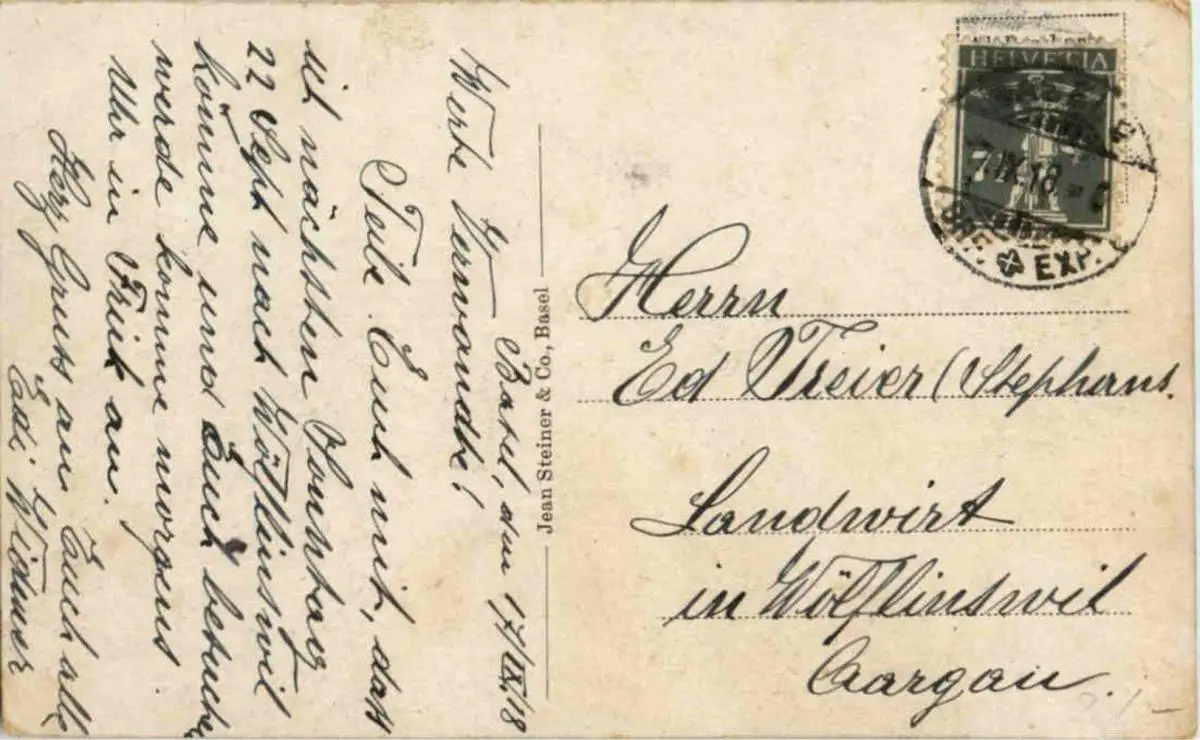 Basel, den 17/IX.18
Werte Verwandte!
Teile Euch mit, dass
ich nächsten Sonntag
22 Sept nach Wölflinswil
komme und Euch besuche
werde komme morgens
Uhr in Frick an.
Herz Gruss an Euch alle
Edi Widmer
Jean Steiner & Co., Basel
HELVETIA
7.IX.18
BRF. EXP.
Herrn
Ed Treier (Stephans.
Landwirt
in Wölflinswil
Aargau.